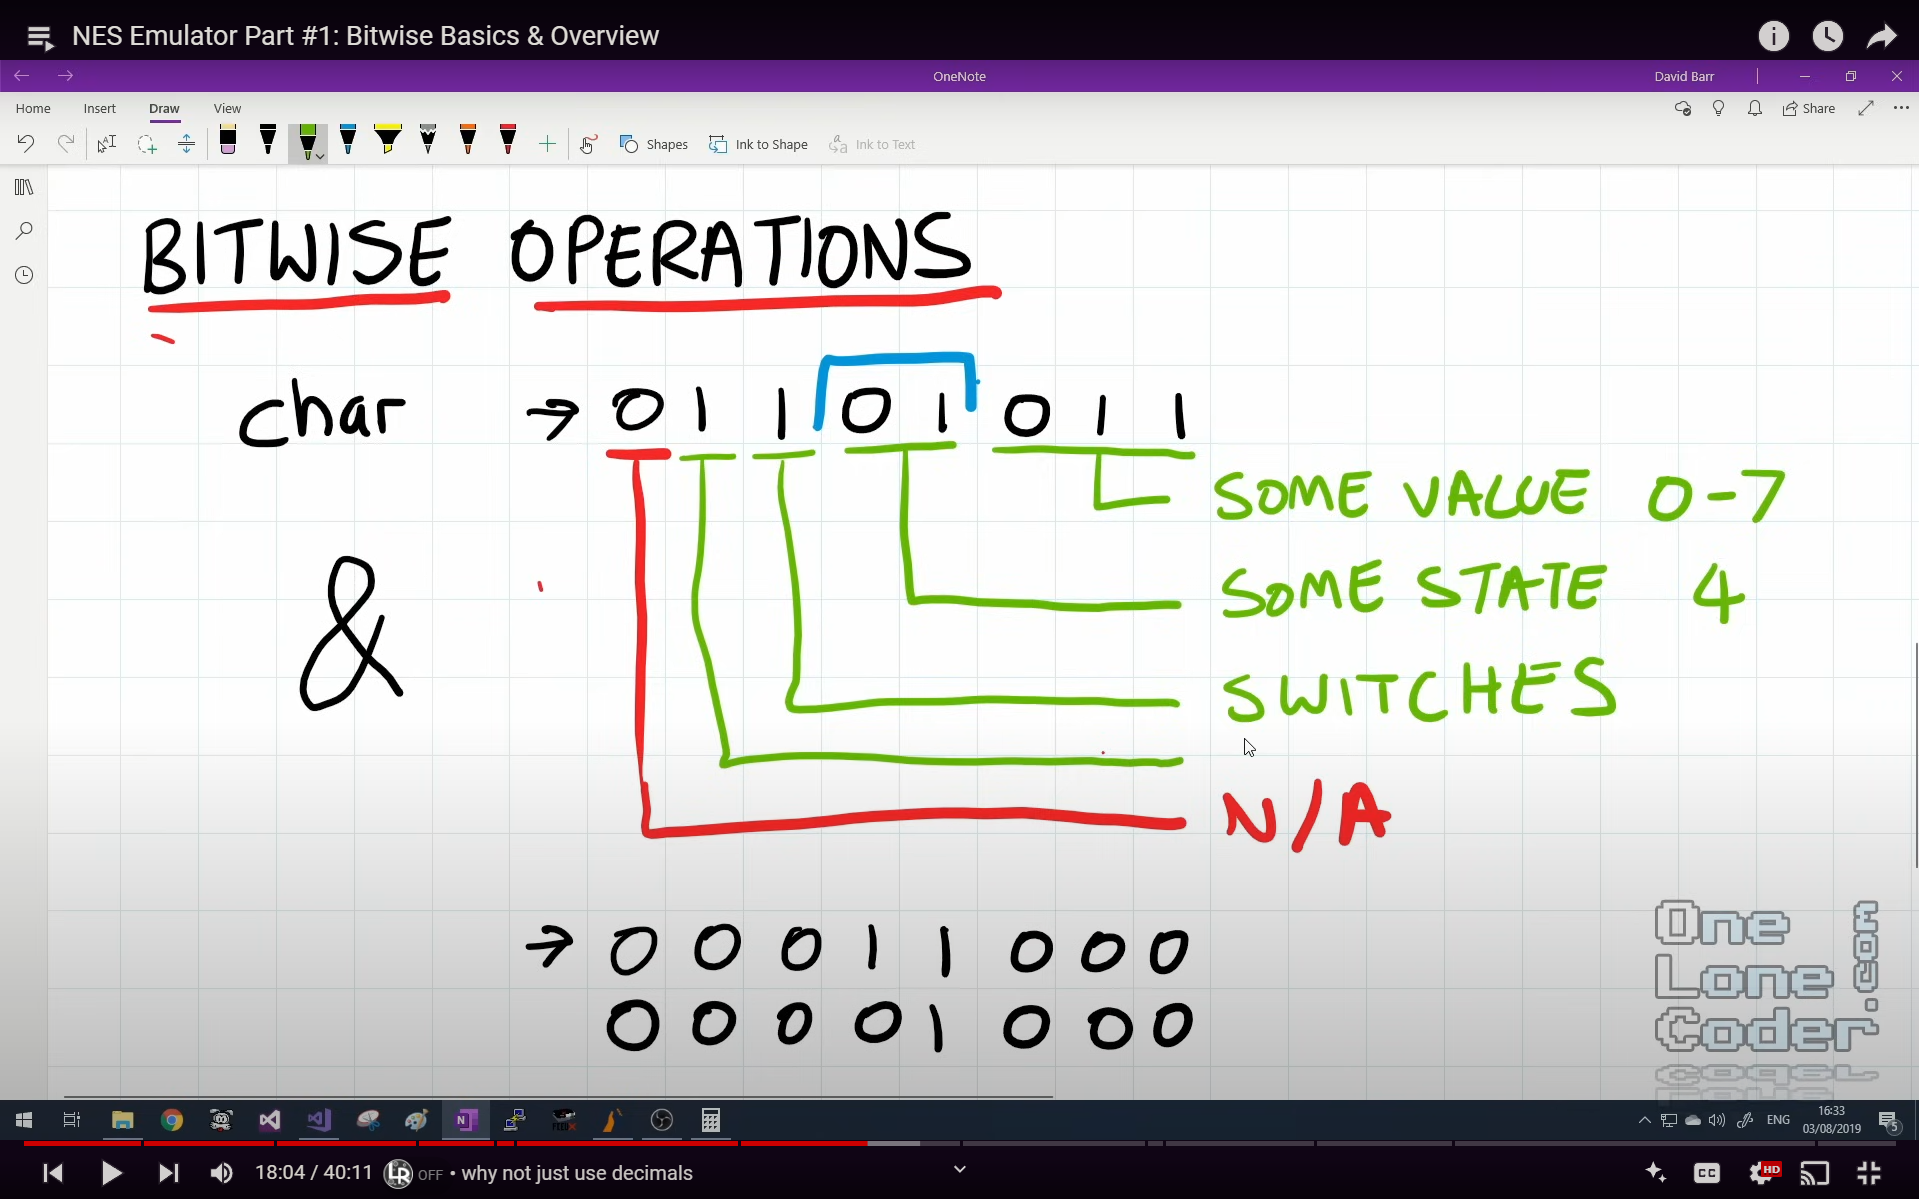 NES Emulator Part #1: Bitwise Basics & Overview
OneNote
David Barr
Home Insert Draw View
Share
Shapes Ink to Shape Ink to Text
BITWISE OPERATIONS
char → 0 1 1 0 1 0 1 1
SOME VALUE 0-7
SOME STATE 4
&
SWITCHES
N/A
→ 0 0 0 1 1 0 0 0
0 0 0 0 1 0 0 0
One
Lone
Coder
.com
ENG
16:33
03/08/2019
5
18:04 / 40:11 LR OFF • why not just use decimals
CC
HD